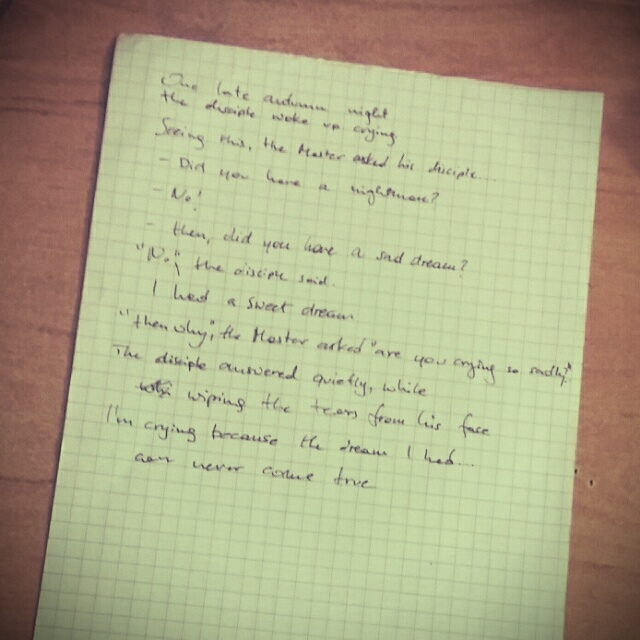 One late autumn night
the disciple woke up crying
Seeing this, the Master asked his disciple...
- Did you have a nightmare?
- No!
- then, did you have a sad dream?
"No", the disciple said.
I had a sweet dream
"then why", the Master asked "are you crying so sadly?"
The disciple answered quietly, while
wiping the tears from his face
I'm crying because the dream I had...
can never come true